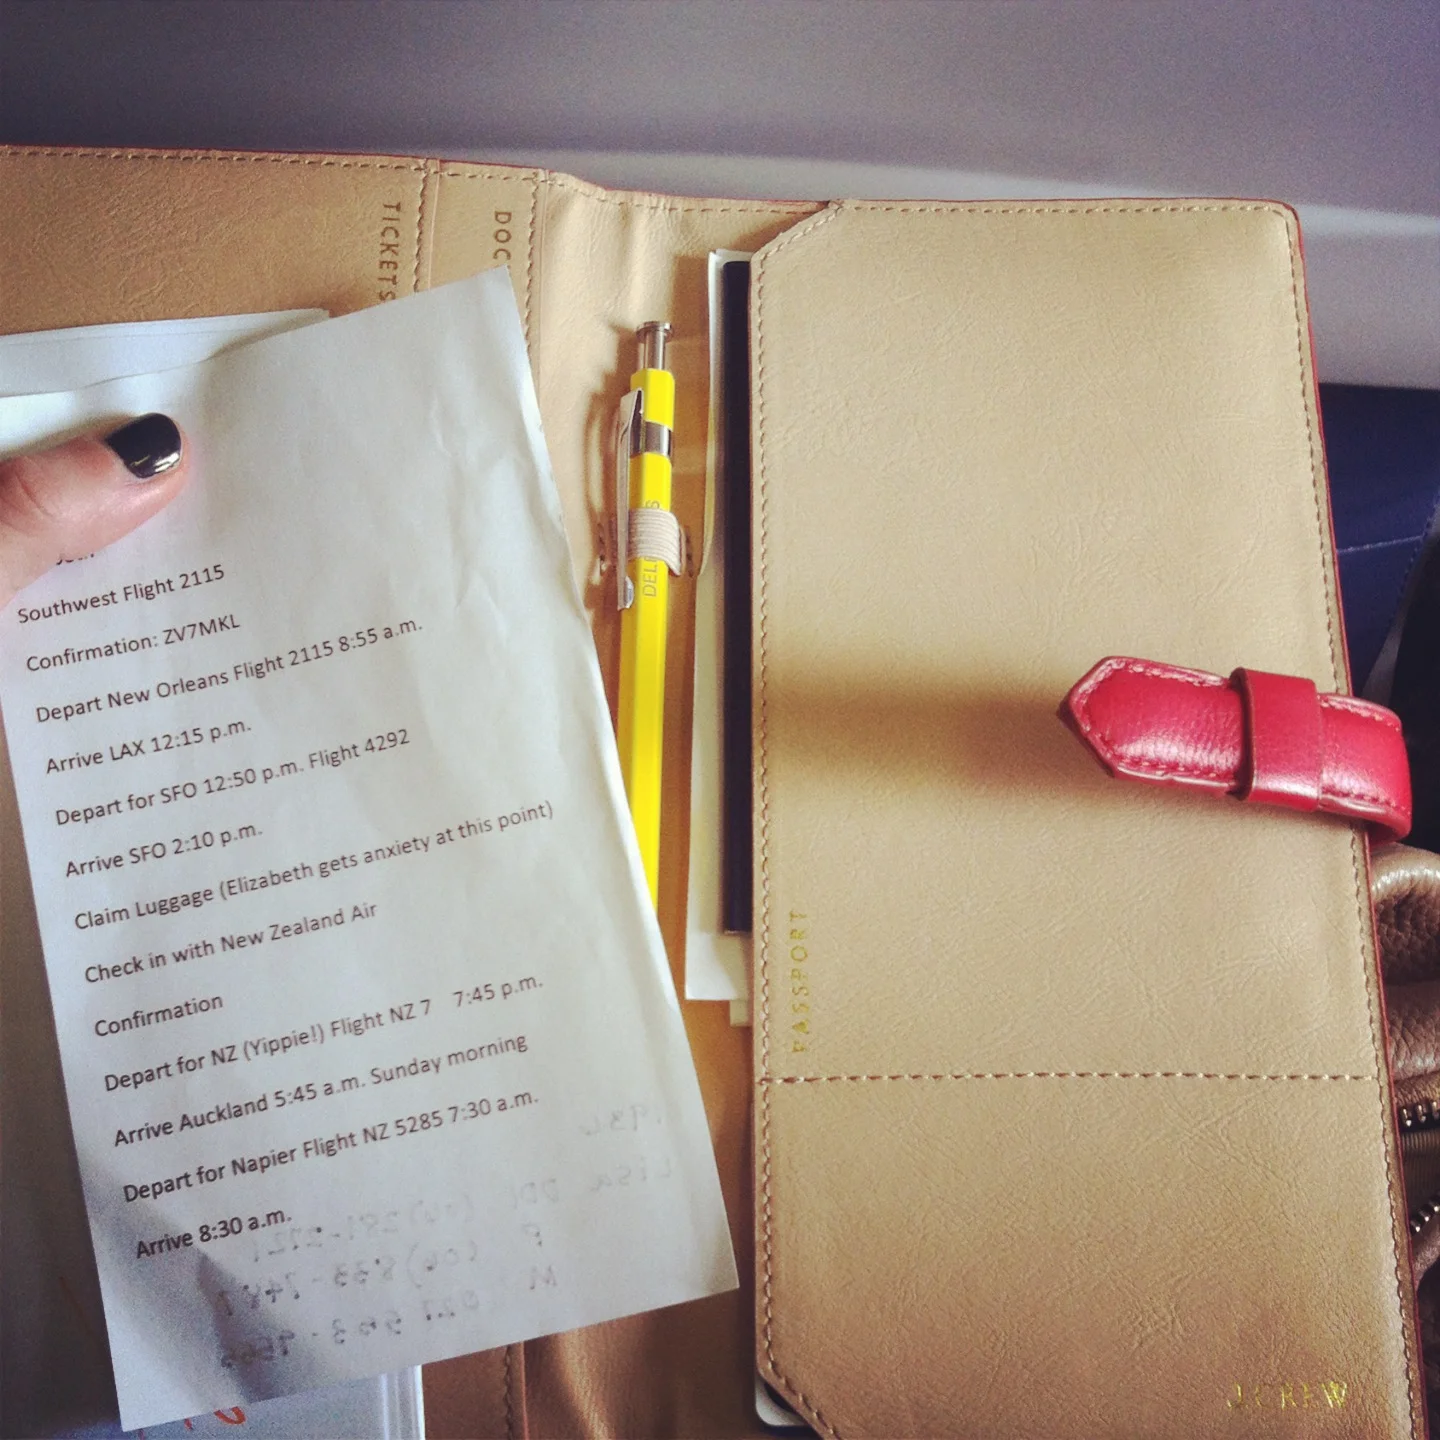 TICKETS
DOC
Southwest Flight 2115
Confirmation: ZV7MKL
Depart New Orleans Flight 2115 8:55 a.m.
Arrive LAX 12:15 p.m.
Depart for SFO 12:50 p.m. Flight 4292
Arrive SFO 2:10 p.m.
Claim Luggage (Elizabeth gets anxiety at this point)
Check in with New Zealand Air
Confirmation
Depart for NZ (Yippie!) Flight NZ 7 7:45 p.m.
Arrive Auckland 5:45 a.m. Sunday morning
Depart for Napier Flight NZ 5285 7:30 a.m.
Arrive 8:30 a.m.
PASSPORT
J.CREW